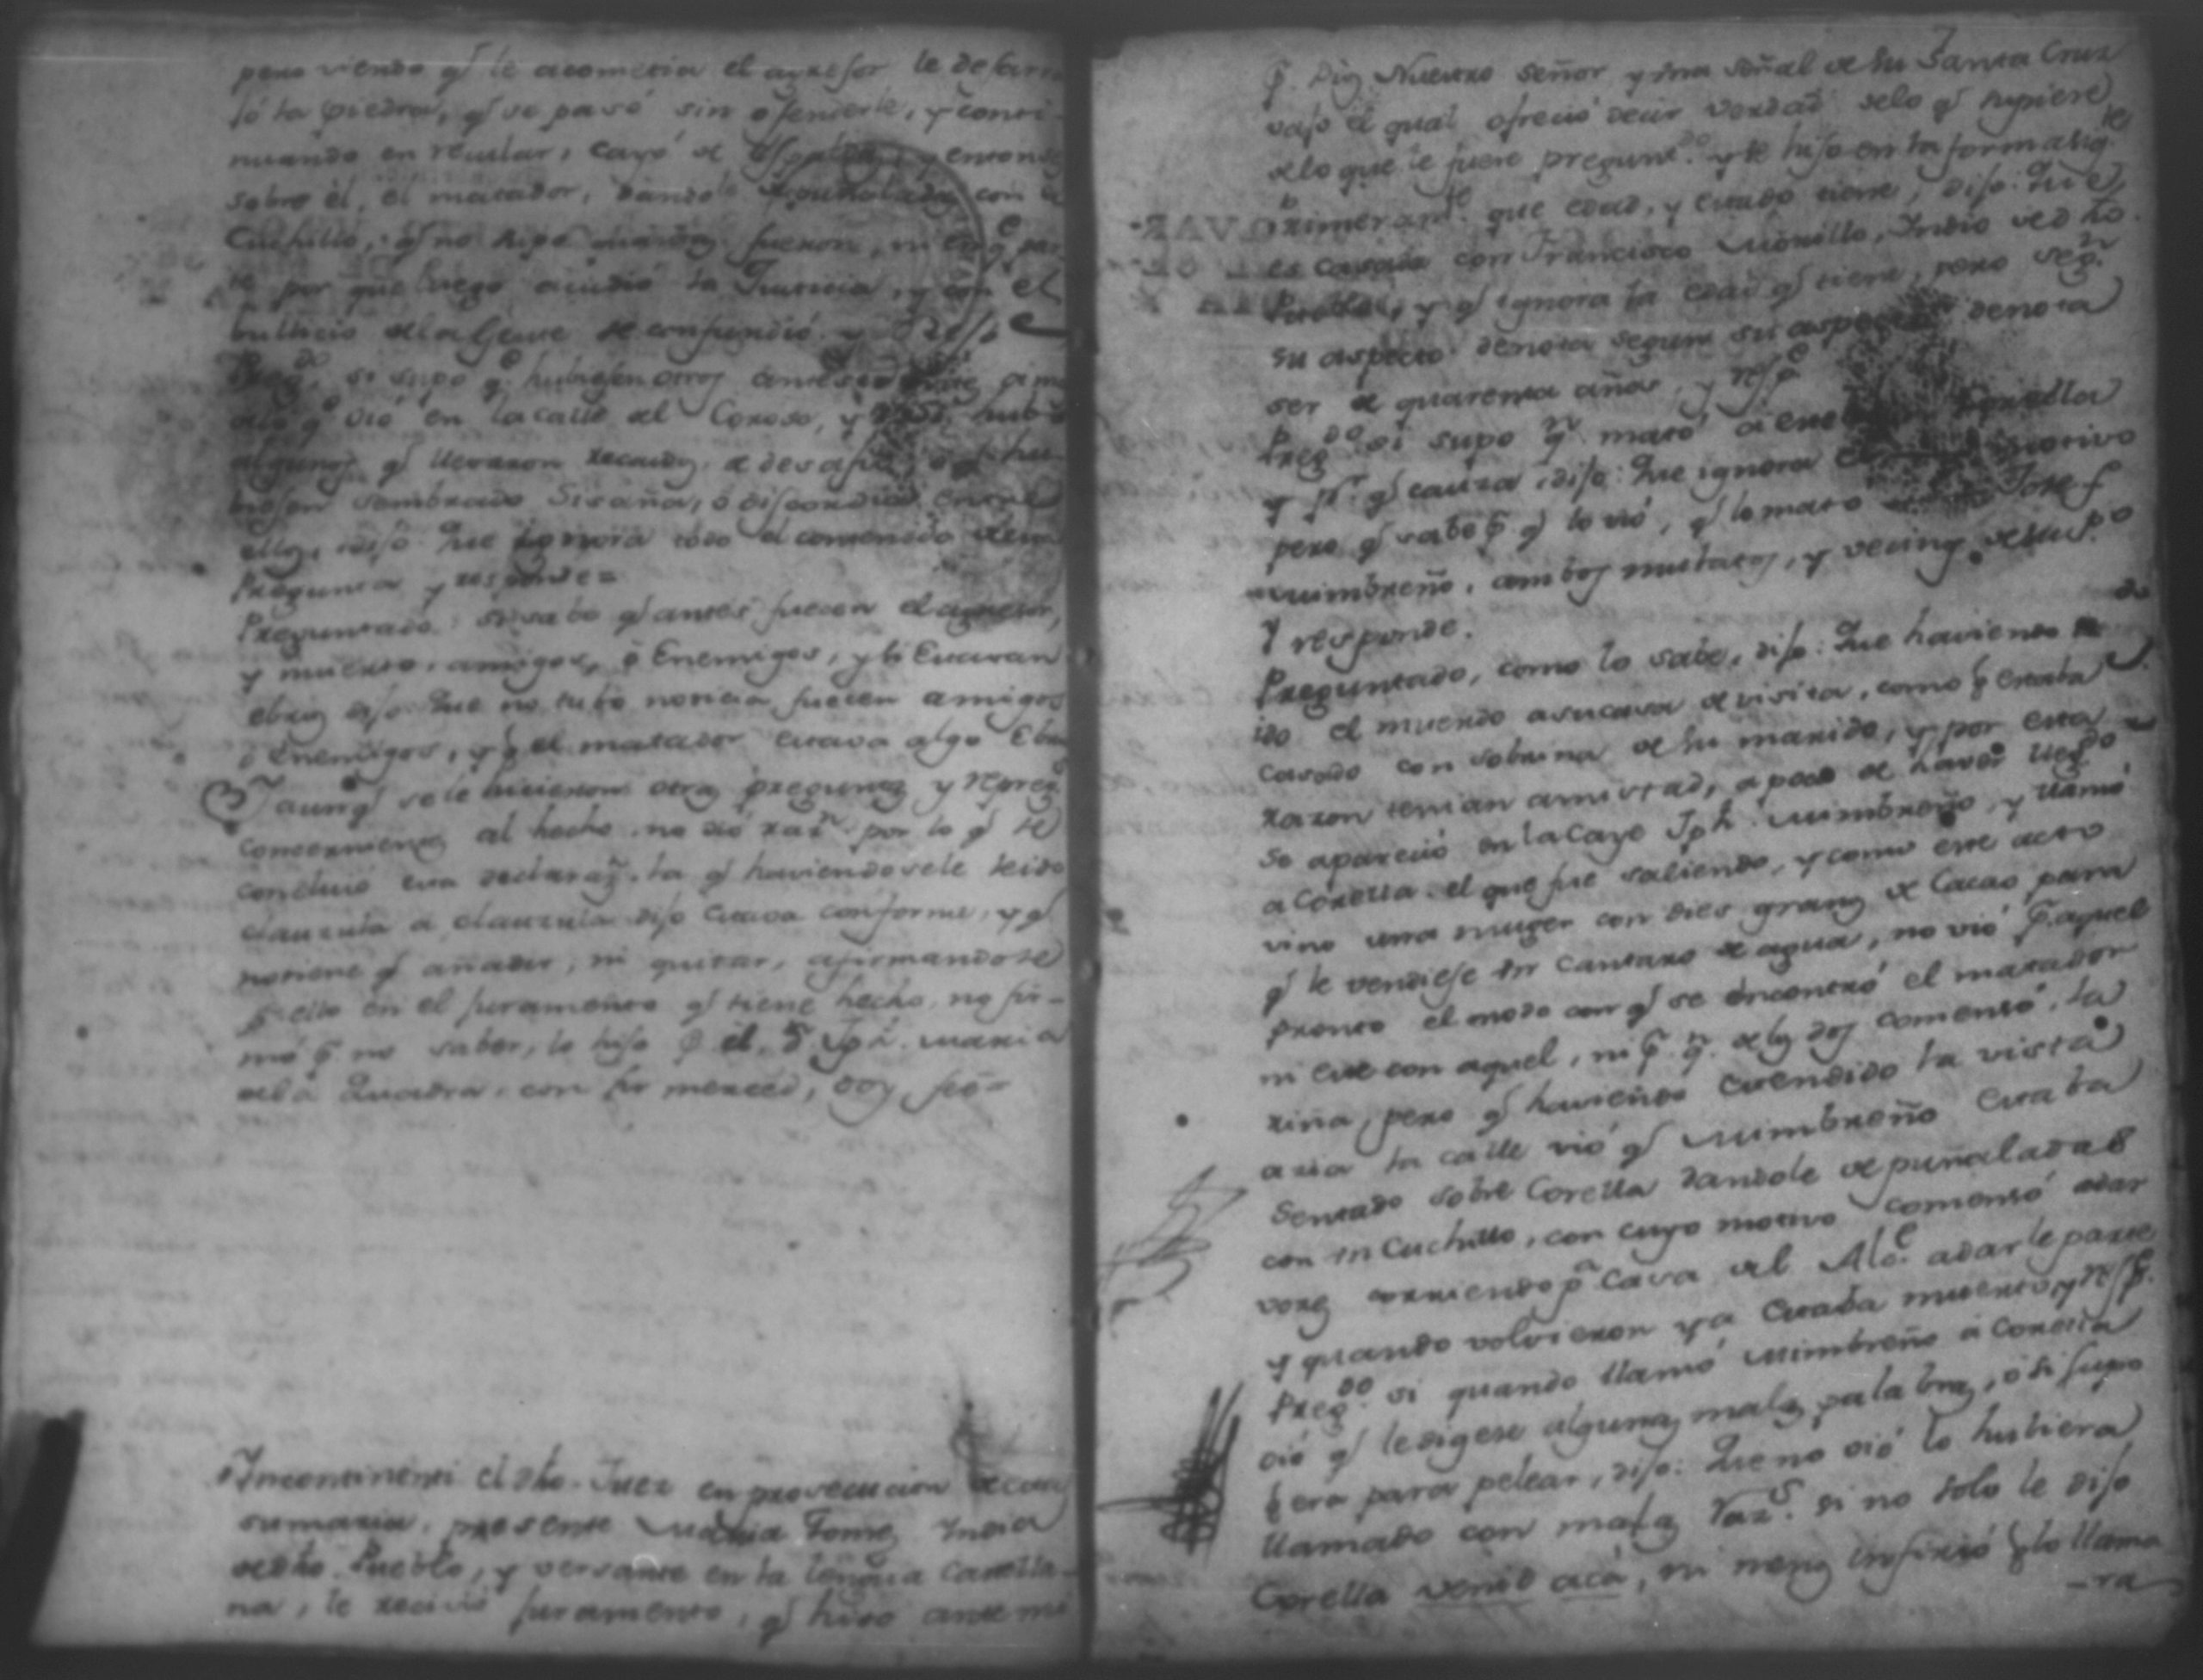 pero viendo q̃ le acometia el agresor le desarro
jó la piedra, q̃ se pasó sin ofenderle, y conti-
nuando en recular, cayó de espaldas, y entonᵍ
sobre él, el matador, dandole de puñaladas con un
Cuchillo, q̃ no supo quantas fueron, ni en q̃ᵉ par
te por que luego acudió la Justicia, y con el
bullicio de la Gente se confundió y Resp
Pregᵈᵒ si supo qᵉ hubiesen otros
qᵉ vió en la calle del Coroso, y
algunos q̃ llevaron recados, a desafio, o q̃ hu-
biesen sembrado Sisaña, ó discordias entre
ellos, dijo: Que ignora todo el contenido dela
Pregunta y responde=
Preguntado: si sabe q̃ antes fuesen el agresor,
y muerto, amigos, ó Enemigos, y si Estavan
ebrios dijo: Que no tubo noticia fuesen amigos
ó Enemigos, y q̃ el matador estava algo Ebri
Y aunq̃ se le hicieron otras preguntas y repregᵗ
concernientes al hecho, no dió razⁿ por lo q̃ se
concluió esta declaraz̃ⁿ. la q̃ haviendosele leido
clauzula a clauzula dijo estava conforme, y q̃
notiene q̃ añadir, ni quitar, afirmandose
p̃ ello en el juramento q̃ tiene hecho, no fir-
mó p̃. no saber, lo hiso p̃ él, Dⁿ Jph. Maria
dela Quadra, con su merced, doy feé=
Incontinenti el dho. Juez en prosecucion de esta
sumaria, presente Maria Tomᵃ India
de dho. Pueblo, y versante en la lengua Castella-
na, le recivió juramento, q̃ hiso ante mi
p̃. Dios Nuestro Señor y una señal de su Santa Cruz
vajo el qual ofreció decir verdad delo q̃ supiere
delo que le fuere preguntᵈᵒ. y le hiso en la forma sigᵗᵉ
Primeramᵗᵉ que edad, y estado tiene, dijo: Que
es casada con Francisco Morillo, Indio de dho.
Pueblo, y q̃ ignora la edad q̃ tiene, pero segⁿ
su aspecto denota segun su aspecto denota
ser de quarenta años, y respᵉ
Pregᵈᵒ si supo qⁿ mató a este Corella
y pʳ. q̃ causa, dijo: Que ignora el motivo
pero q̃ sabe p̃ q̃ lo vió, q̃ lo mató Josef
Mimbreño, ambos mulatos, y vecinos de su Pᵒ
Y responde.
Preguntado, como lo sabe, dijo: Que haviendo
ido el muerdo asucasa de visita, como q̃ estaba
casado con sobrina de su marido, y por esta
razon tenian amistad, a poco de haver llegᵈᵒ
se apareció en la Caye Jph. Mimbreño, y llamó
a Corella, el que fue saliendo, y como este acto
vino una muger con dies granos de Cacao para
q̃ le vendiese un cantaro de agua, no vió p̃. aquel
pronto el modo con q̃ se encontró el matador
ni este con aquel, ni p̃. qⁿ. delos dos comensó, la
riña, pero q̃ haviendo estendido la vista
azia la calle vió q̃ Mimbreño estaba
Sentado sobre Corella dandole de puñaladas
con un Cuchillo, con cuyo motivo comensó adar
voses corriendo pᵃ Casa del Alcᵉ. adarle parte
y quando volvieron ya estaba muerto, y respᵉ.
Pregᵈᵒ. si quando llamó Mimbreño á Corella
oió q̃ le digese algunas malas palabras, o si supo
q̃ era para pelear, dijo: Que no oió lo hubiera
llamado con malas razˢ. si no solo le dijo
Corella venid acá, ni menos infirió q̃ lo llama
-ra